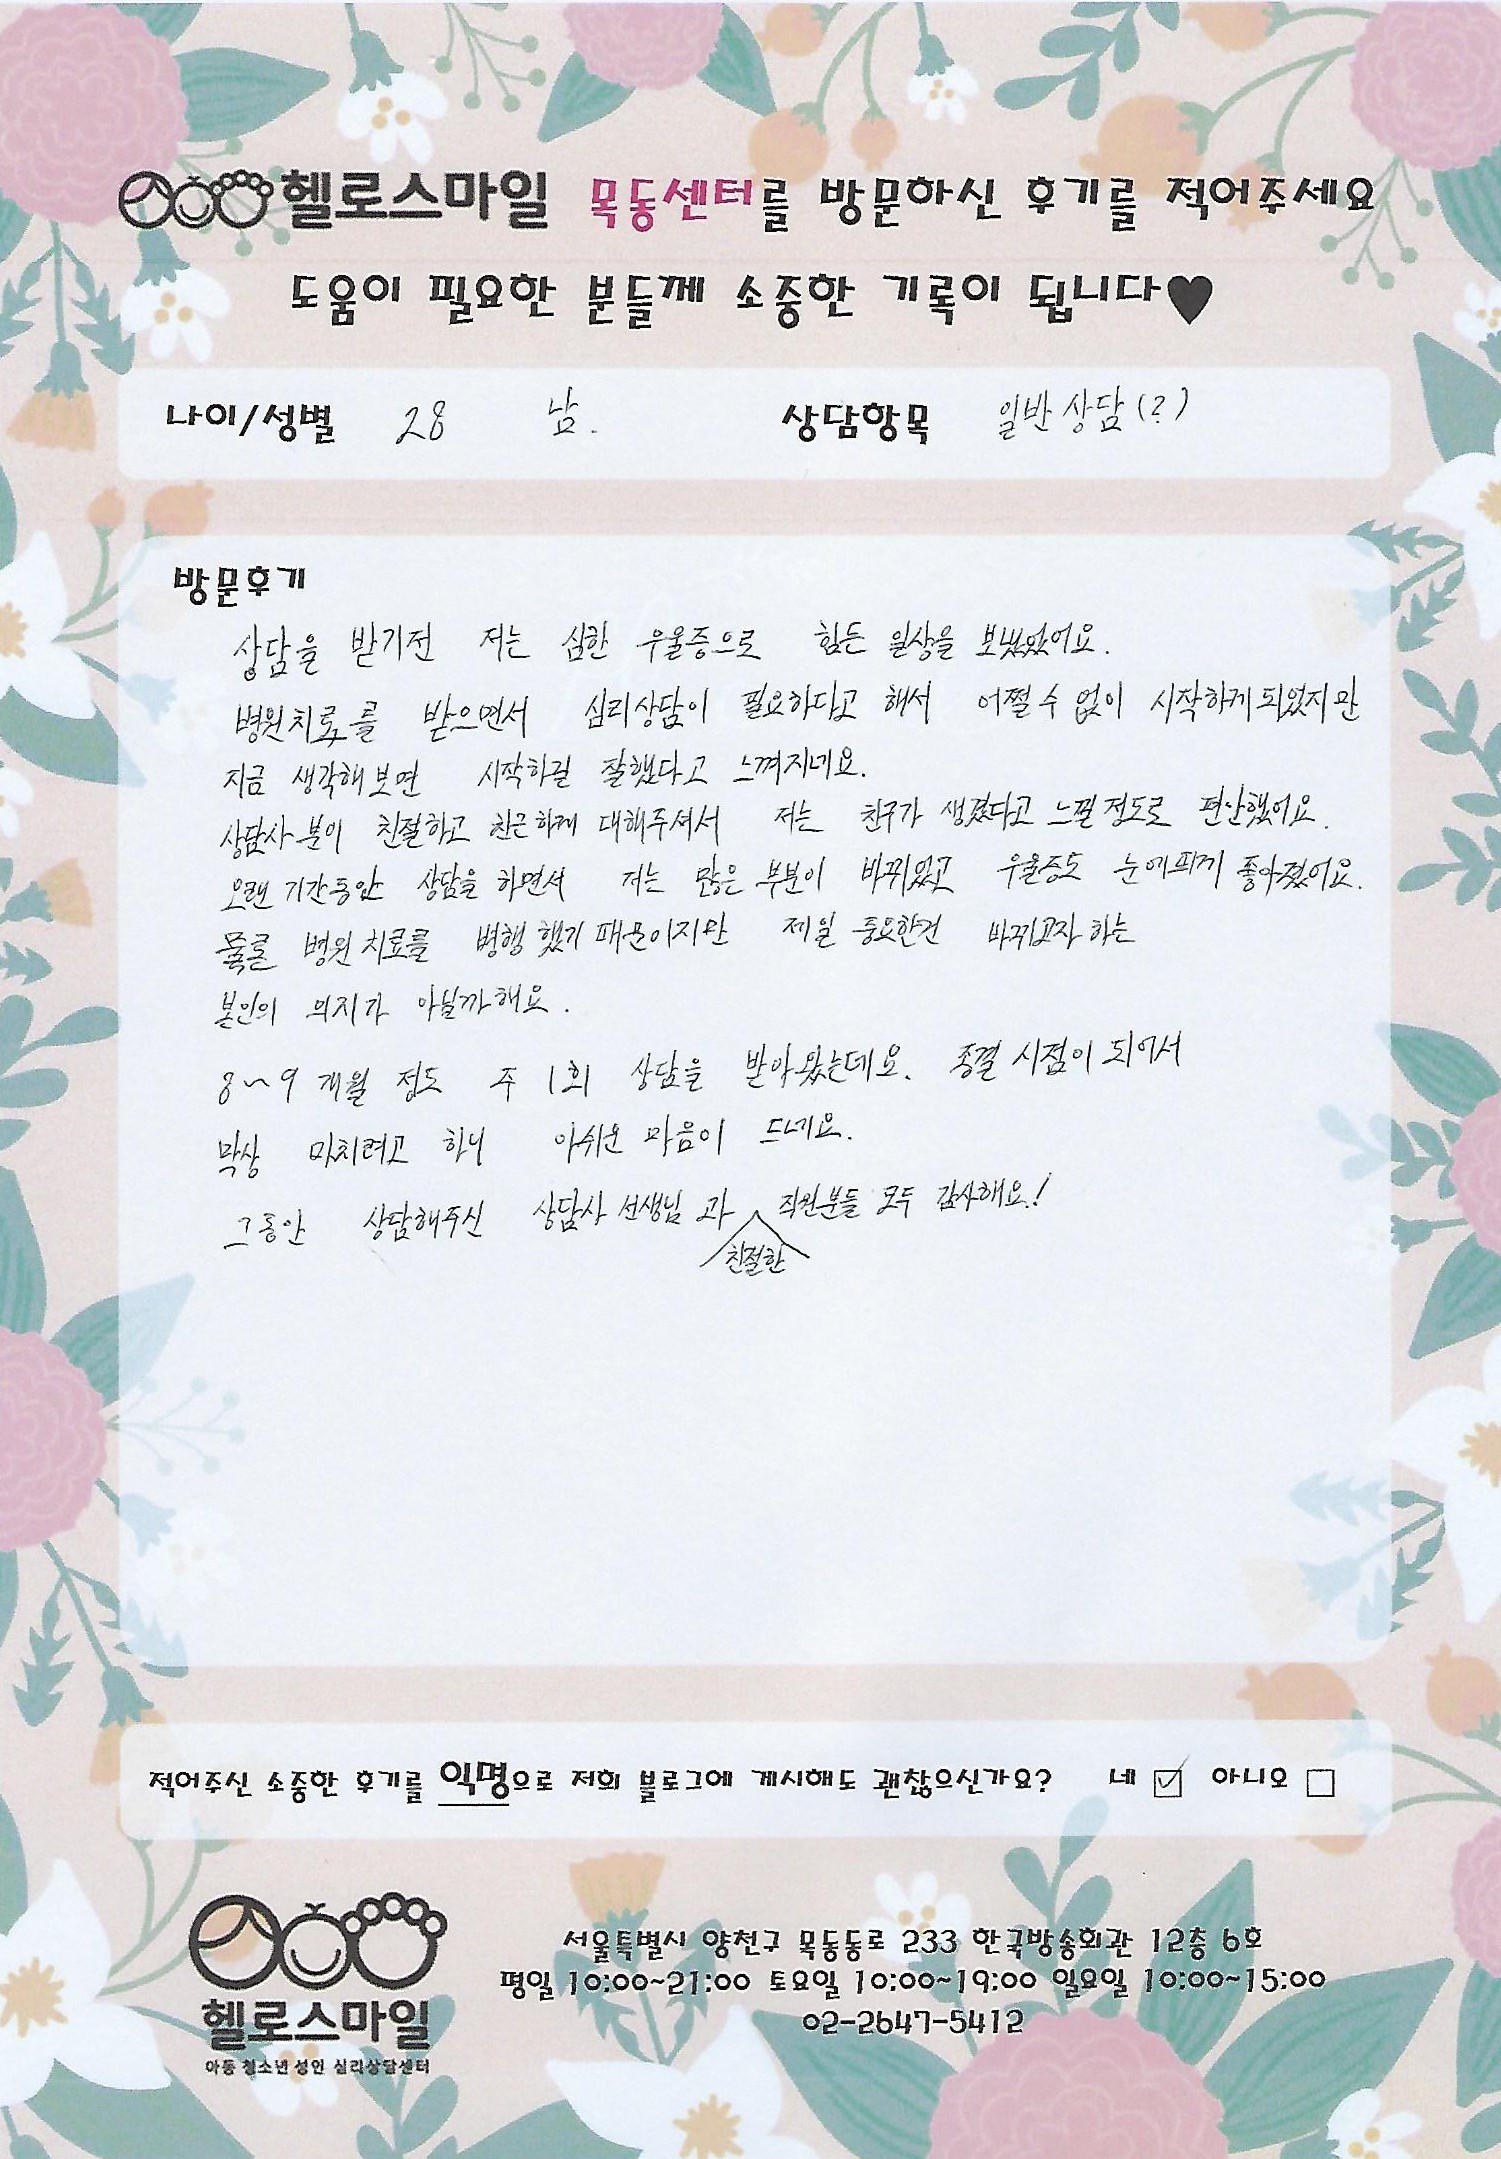 헬로스마일 목동센터를 방문하신 후기를 적어주세요
도움이 필요한 분들께 소중한 기록이 됩니다♥
나이/성별 28 남. 상담항목 일반상담(?)
방문후기
상담을 받기전 저는 심한 우울증으로 힘든 일상을 보냈었어요.
병원치료를 받으면서 심리상담이 필요하다고 해서 어쩔 수 없이 시작하게되었지만
지금 생각해보면 시작하길 잘했다고 느껴지네요.
상담사분이 친절하고 친근하게 대해주셔서 저는 친구가 생겼다고 느낄정도로 편안했어요.
오랜 기간동안 상담을 하면서 저는 많은 부분이 바뀌었고 우울증도 눈에띄게 좋아졌어요.
물론 병원 치료를 병행했기 때문이지만 제일 중요한건 바뀌고자 하는
본인의 의지가 아닐까해요.
8~9 개월 정도 주 1회 상담을 받아왔는데요. 종결 시점이 되어서
막상 마치려고 하니 아쉬운 마음이 드네요.
그동안 상담해주신 상담사 선생님 과 직원분들 모두 감사해요!
친절한
적어주신 소중한 후기를 익명으로 저희 블로그에 게시해도 괜찮으신가요? 네 ☑ 아니오 □
서울특별시 양천구 목동동로 233 한국방송회관 12층 6호
평일 10:00~21:00 토요일 10:00~19:00 일요일 10:00~15:00
02-2647-5412
헬로스마일
아동 청소년 성인 심리상담센터